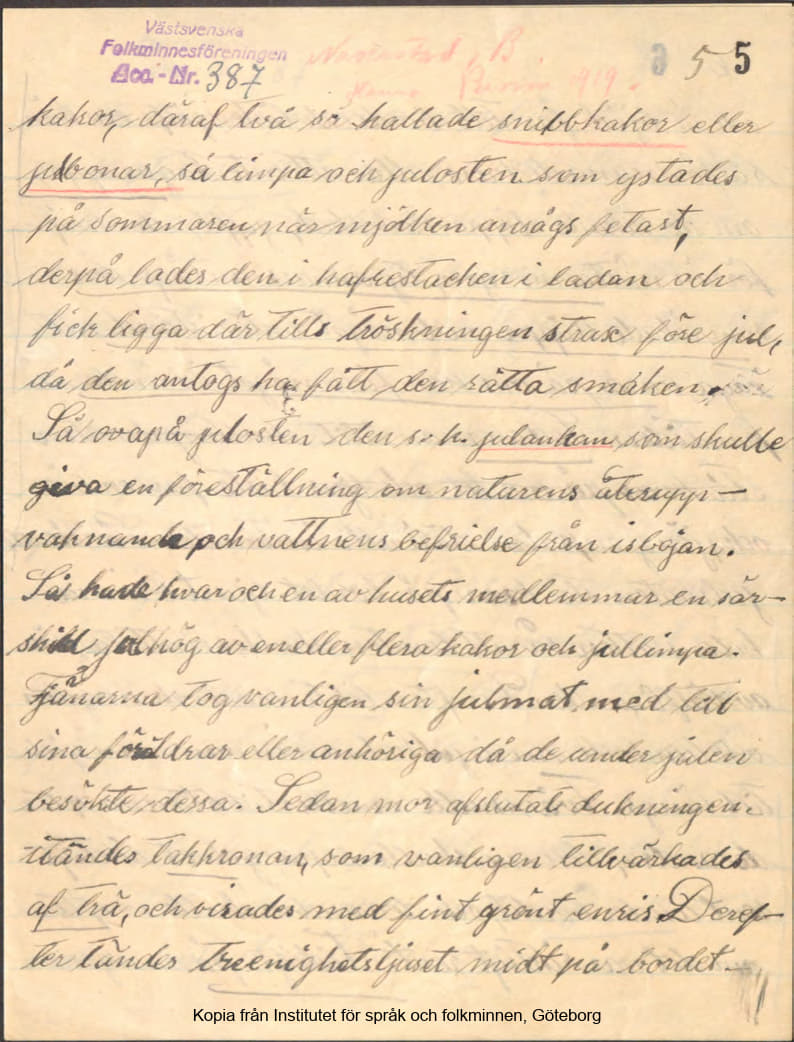 Västsvenska
Folkminnesföreningen
Acc.-Nr. 387
B
1919.
5 5
kakor, däraf två så kallade snibbkakor eller
julbonar, så limpa och julosten som ystades
på sommaren när mjölken ansågs fetast,
derpå lades den i hafrestacken i ladan och
fick ligga där tills tröskningen strax före jul,
då den antogs ha fått den rätta smaken.
Så ovapå julosten den s. k. julankan, som skulle
giva en föreställning om naturens återupp-
vaknande och vattnens befrielse från isbojan.
Så hade hvar och en av husets medlemmar en sär-
skild julhög av en eller flera kakor och jullimpa.
Tjänarna tog vanligen sin julmat med till
sina föräldrar eller anhöriga då de under julen
besökte dessa. Sedan mor afslutat dukningen
tändes takkronan, som vanligen tillvärkades
af trä, och virades med fint grönt enris. Deref-
ter tändes treenighetsljuset midt på bordet.
Kopia från Institutet för språk och folkminnen, Göteborg